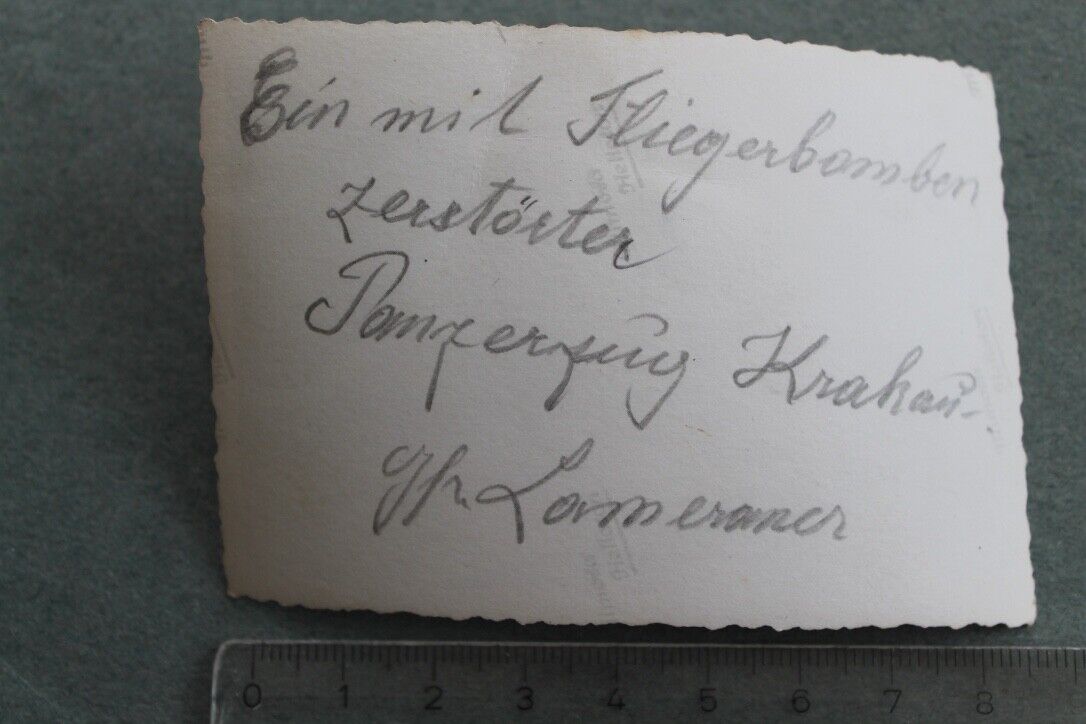 Ein mit Fliegerbomben
zerstörter
Panzerzug Krakau-
Gfr. Lameraner
0 1 2 3 4 5 6 7 8